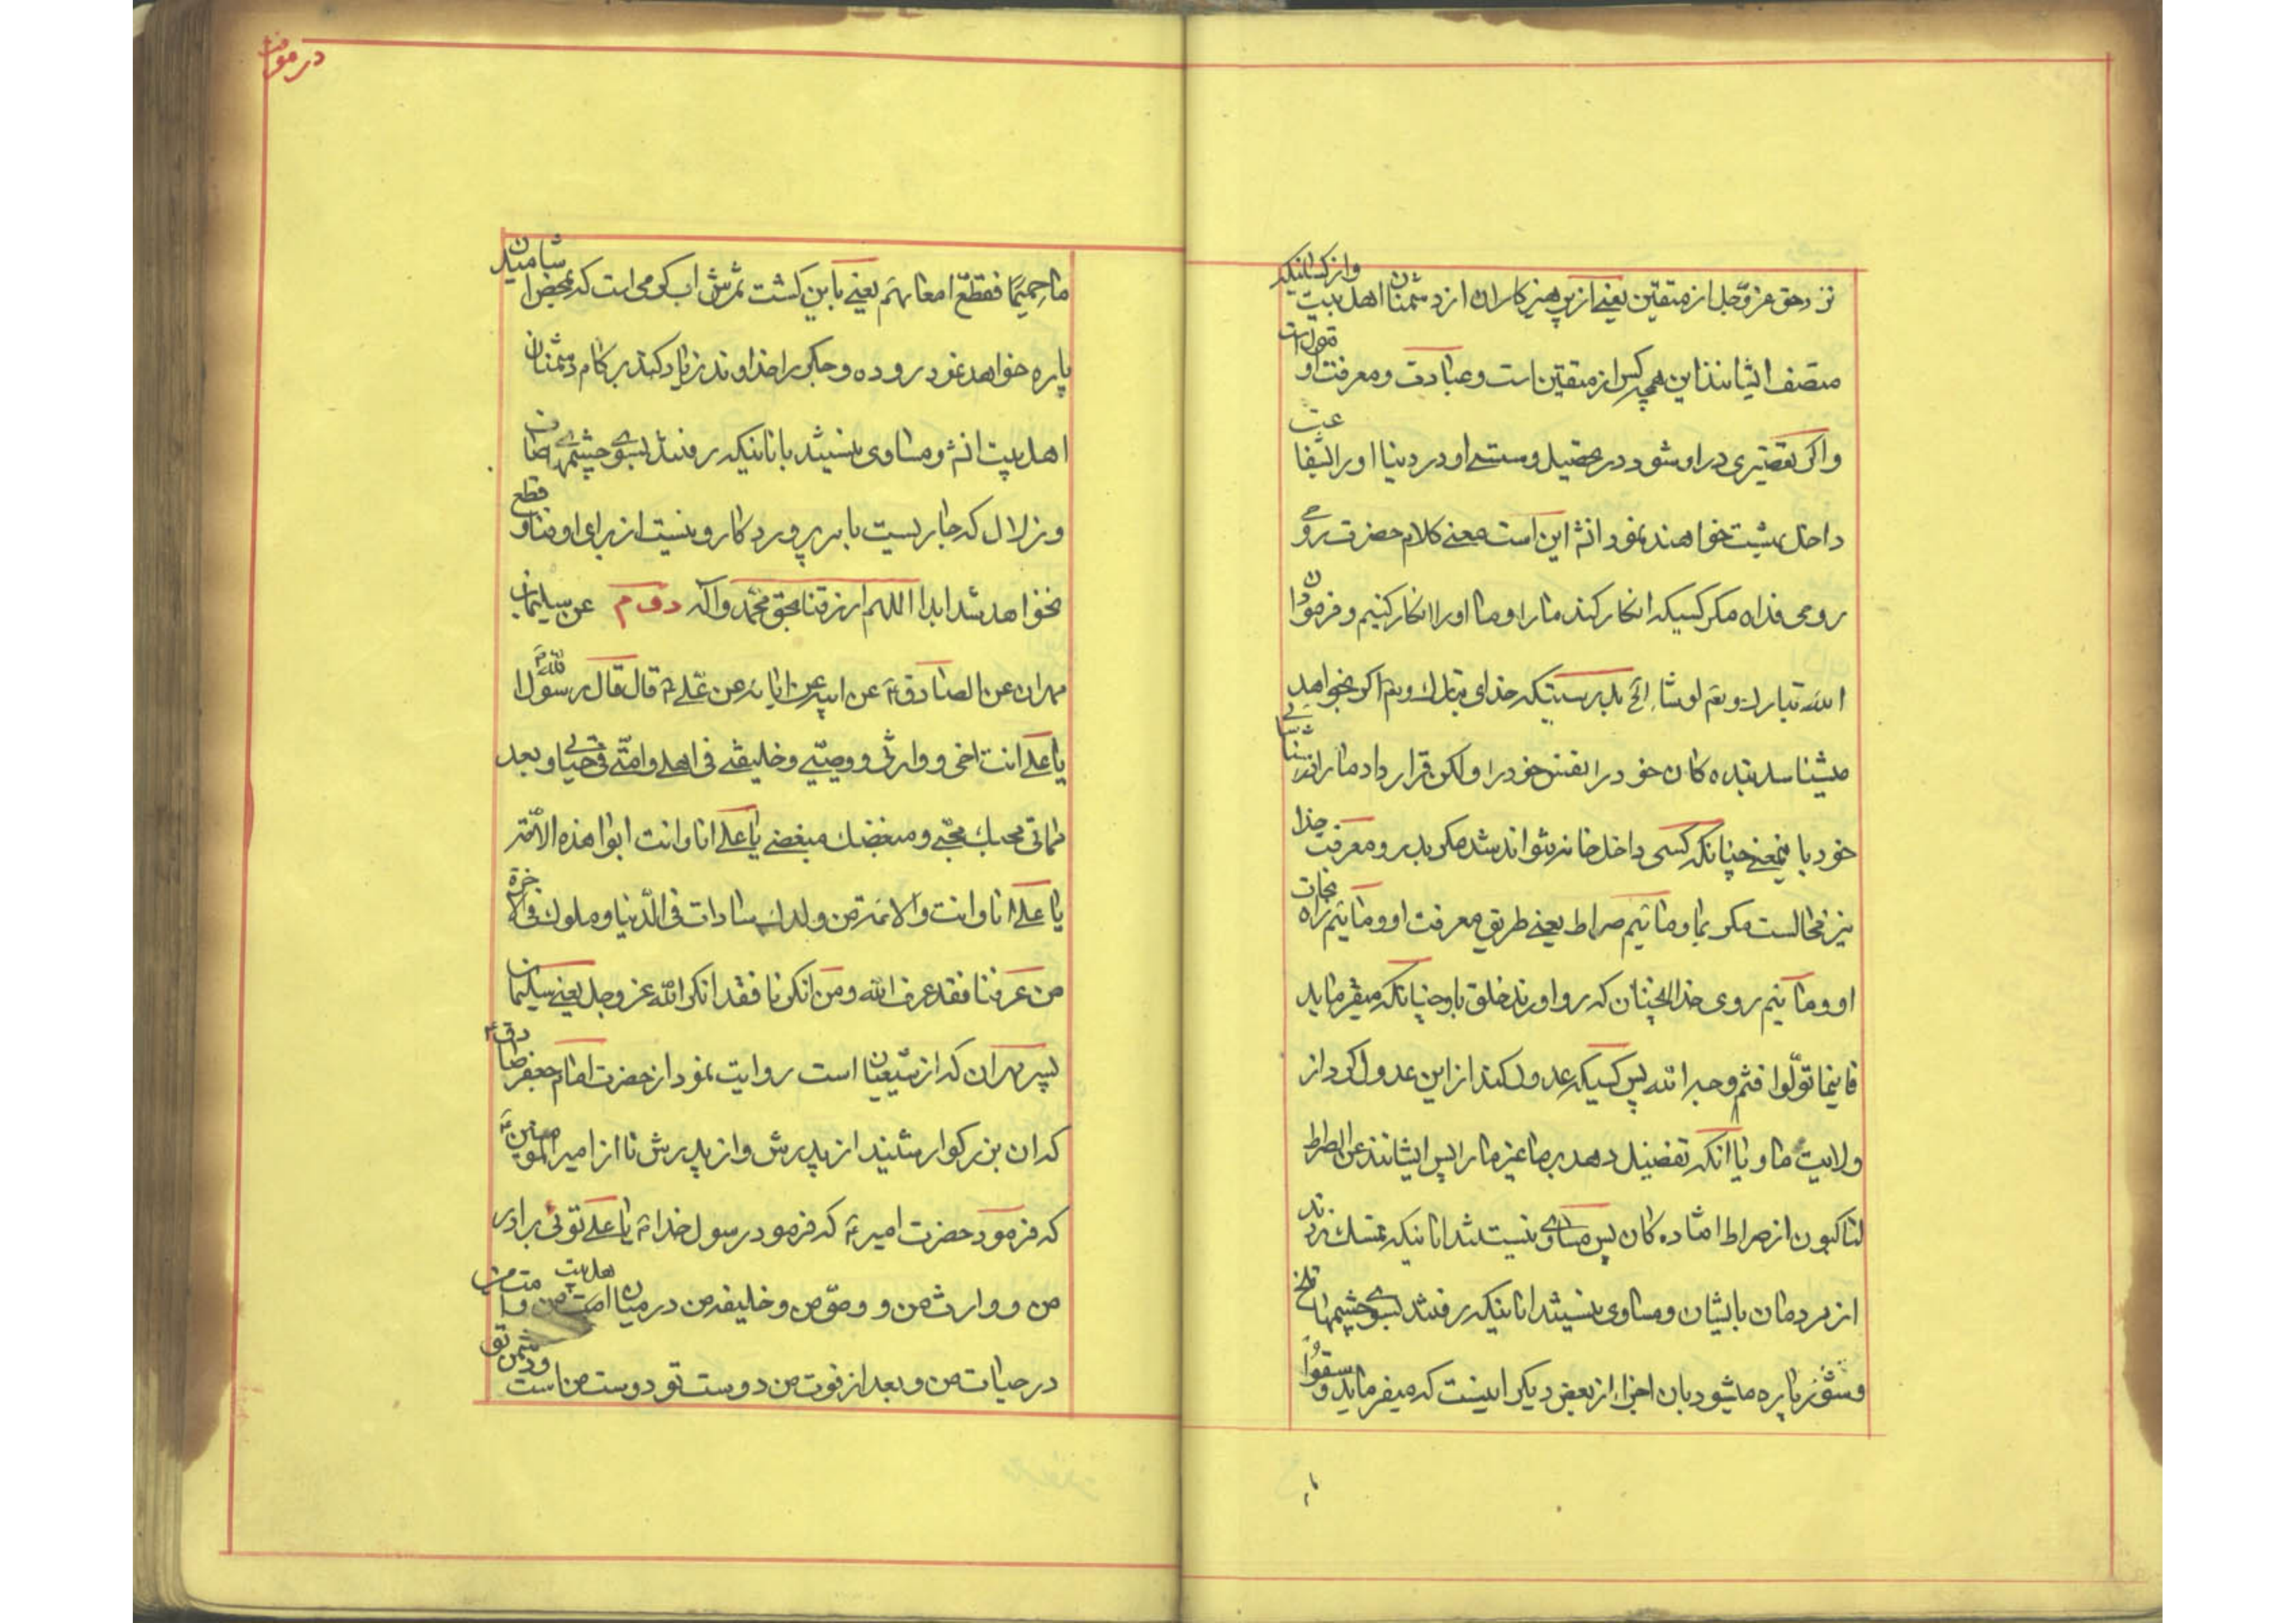 نزد حق عز و جل از متقین یعنی از پرهیزکاران از دشمنان اهل بیت و از کسانیکه
متصف ایشانند این همچه کس از متقین است و عبادت و معرفت او قبول است
و اکر تقصیری در او شود در تحصیل و سستی او در دنیا او را
داخل بهشت خواهند نمود انش این است معنی کلام حضرت
روحی فداه مکر کسیکه انکار کند ما را و ما او را انکار کنیم و فرمود ان
الله تبارک و تعم لو شاء الخ بدرستیکه خدای تبارک و تعم اکر بخواهد
میشناسد بنده کان خود را نفس خود را و لکن قرار داد ما را در شناسائی
خود باینمعنی چنانکه کسی داخل خانه نتواند شد مکر بدر و معرفت خدا
نیز محالست مکر بما و مائیم صراط یعنی طریق معرفت او و مائیم راه نجات
او و مائیم روی خدا انچنان که رو اورند خلق باو چنانکه میفرماید
فاینما تولّوا فثم وجه الله پس کسیکه عدول کند از این عدول کرد از
ولایت ما و یا انکه تفضیل دهد بر ما غیر ما را پس ایشانند عن الصراط
لناکبون از صراط افتاده کان پس مساوی نیستند انانیکه تمسک زدند
از مردمان بایشان و مساوی نیستند انانیکه رفتند بسوی چشمهای تلخ
و شور پاره میشود بان اجزاء از بعض دیکر اینست که میفرماید و سقوا
در موت
ماء حمیمًا فقطّع امعائهم یعنی باین کشت ثمرش اب کرمی است که بمحض اشامیدن
پاره خواهد نمود روده و جکر را خداوند زیاد کند بر کام دشمنان
اهل بیت انش و مساوی نیستند با انانیکه رفتند بسوی چشمهای صاف
و زلال که جاریست بامر پروردکار و نیست از برای او فنا و قطع
نخواهد شد ابدا اللهم ارزقنا بحق محمّد و اله دوم عن سلیمان
مهران عن الصادق ع عن ابیه عن ابائه عن علی ع قال قال رسول الله ص
یا علی انت اخی و وارثی و وصیّی و خلیفتی فی اهلی و امّتی فی حیاتی و بعد
مماتی محبک محبّی و مبغضک مبغضی یا علی انا و انت ابوا هذه الامّة
یا علی انا و انت و الائمة من ولدک سادات فی الدّنیا و ملوک فی الاخرة
من عرفنا فقد عرف الله و من انکرنا فقد انکر الله عز و جل یعنی سلیمان
پسر مهران که از شیعیان است روایت نمود از حضرت امام جعفر صادق ع
که ان بزرکوار شنید از پدرش و از پدرش تا از امیر المومنین ع
که فرمود حضرت امیر ع که فرمود رسول خدا ص یا علی توئی برادر
من و وارث من و وصیّ من و خلیفه من در میان اهل بیت من و امت من
در حیات من و بعد از فوت من دوست تو دوست من است و دشمن تو